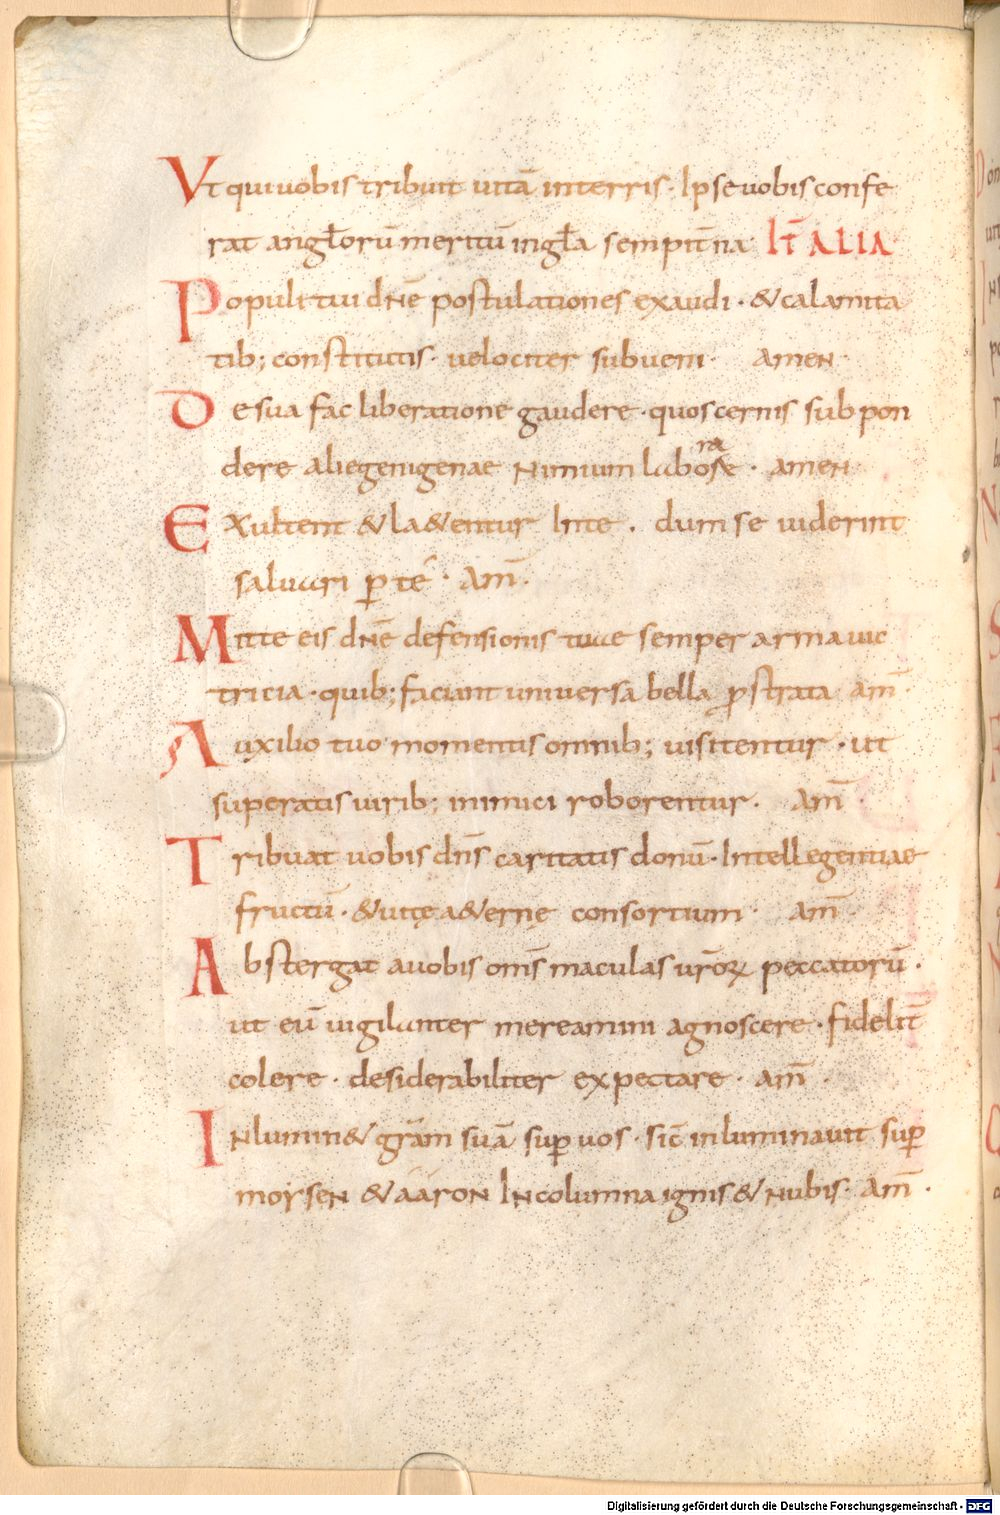 Vt qui uobis tribuit uitā interris. Ipse uobis confe
rat angƚorū meritū ingƚa sempit̄na IT̄ ALIA
Populi tui dn̄e postulationes exaudi. &calamita
tib; constitutis. uelociter subueni. AMEN
De sua fac liberatione gaudere. quos cernis sub pon
dere aliegenigenae Nimium labo
ra
se. AMEN
Exultent &la&entur Inte. dum se uiderint
saluari ꝑ te. Am̄.
Mitte eis dn̄e defensionis tuae semper arma uic
tricia. quib; faciant uniuersa bella ꝓstrata am̄
Auxilio tuo momentis omnib; uisitentur. ut
superatis uirib; inimici roborentur. Am̄
Tribuat uobis dn̄s caritatis donū. Intellegentiae
fructū. &uitę a&ernę consortium. Am̄.
Abstergat auobis om̄s maculas ur̄oꝝ peccatorū.
ut eū uigilanter mereamini agnoscere. fidelit̄
colere. desiderabiliter expectare. am̄.
INlumin& gr̄am suā sup̄ uos. sic̄ inluminauit sup̄
moysen &aaron IN columna ignis & nubis. Am̄.
Digitalisierung gefördert durch die Deutsche Forschungsgemeinschaft - DFG